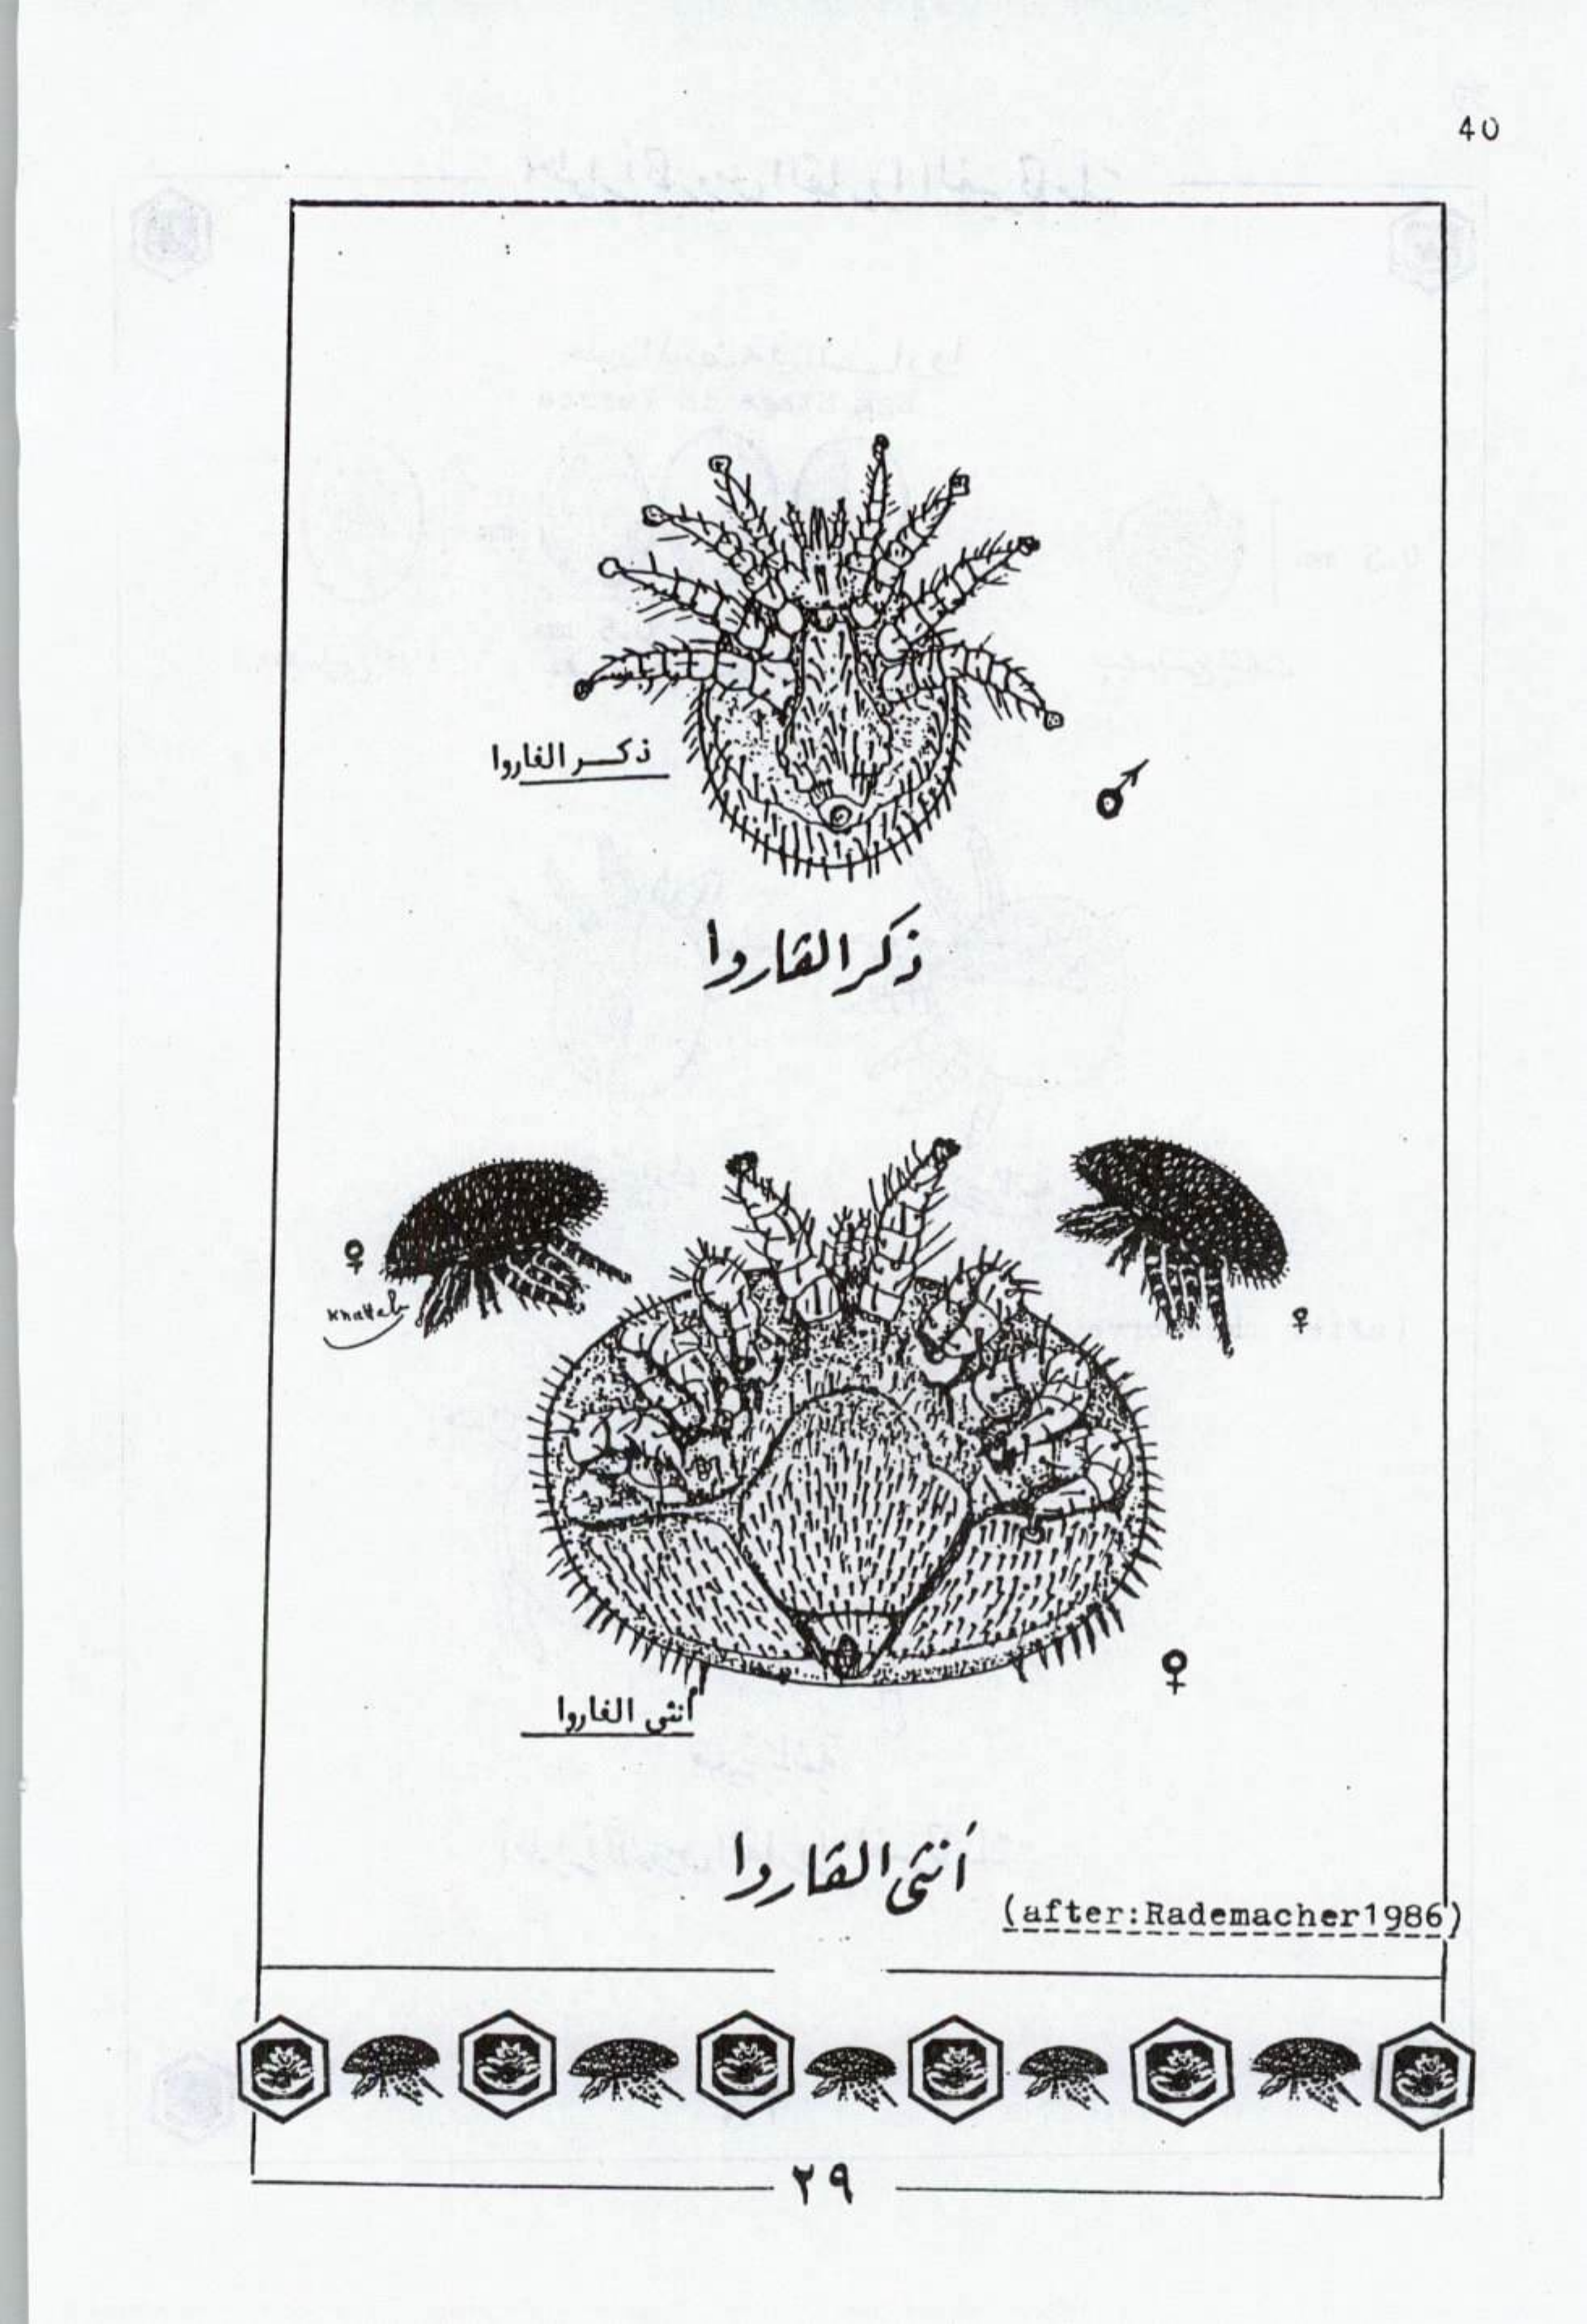 40
ذكـر الفاروا
♂
ذكر الڤاروا
♀
♀
♀
أنثى الفاروا
أنثى الڤاروا
(after:Rademacher1986)
٢٩